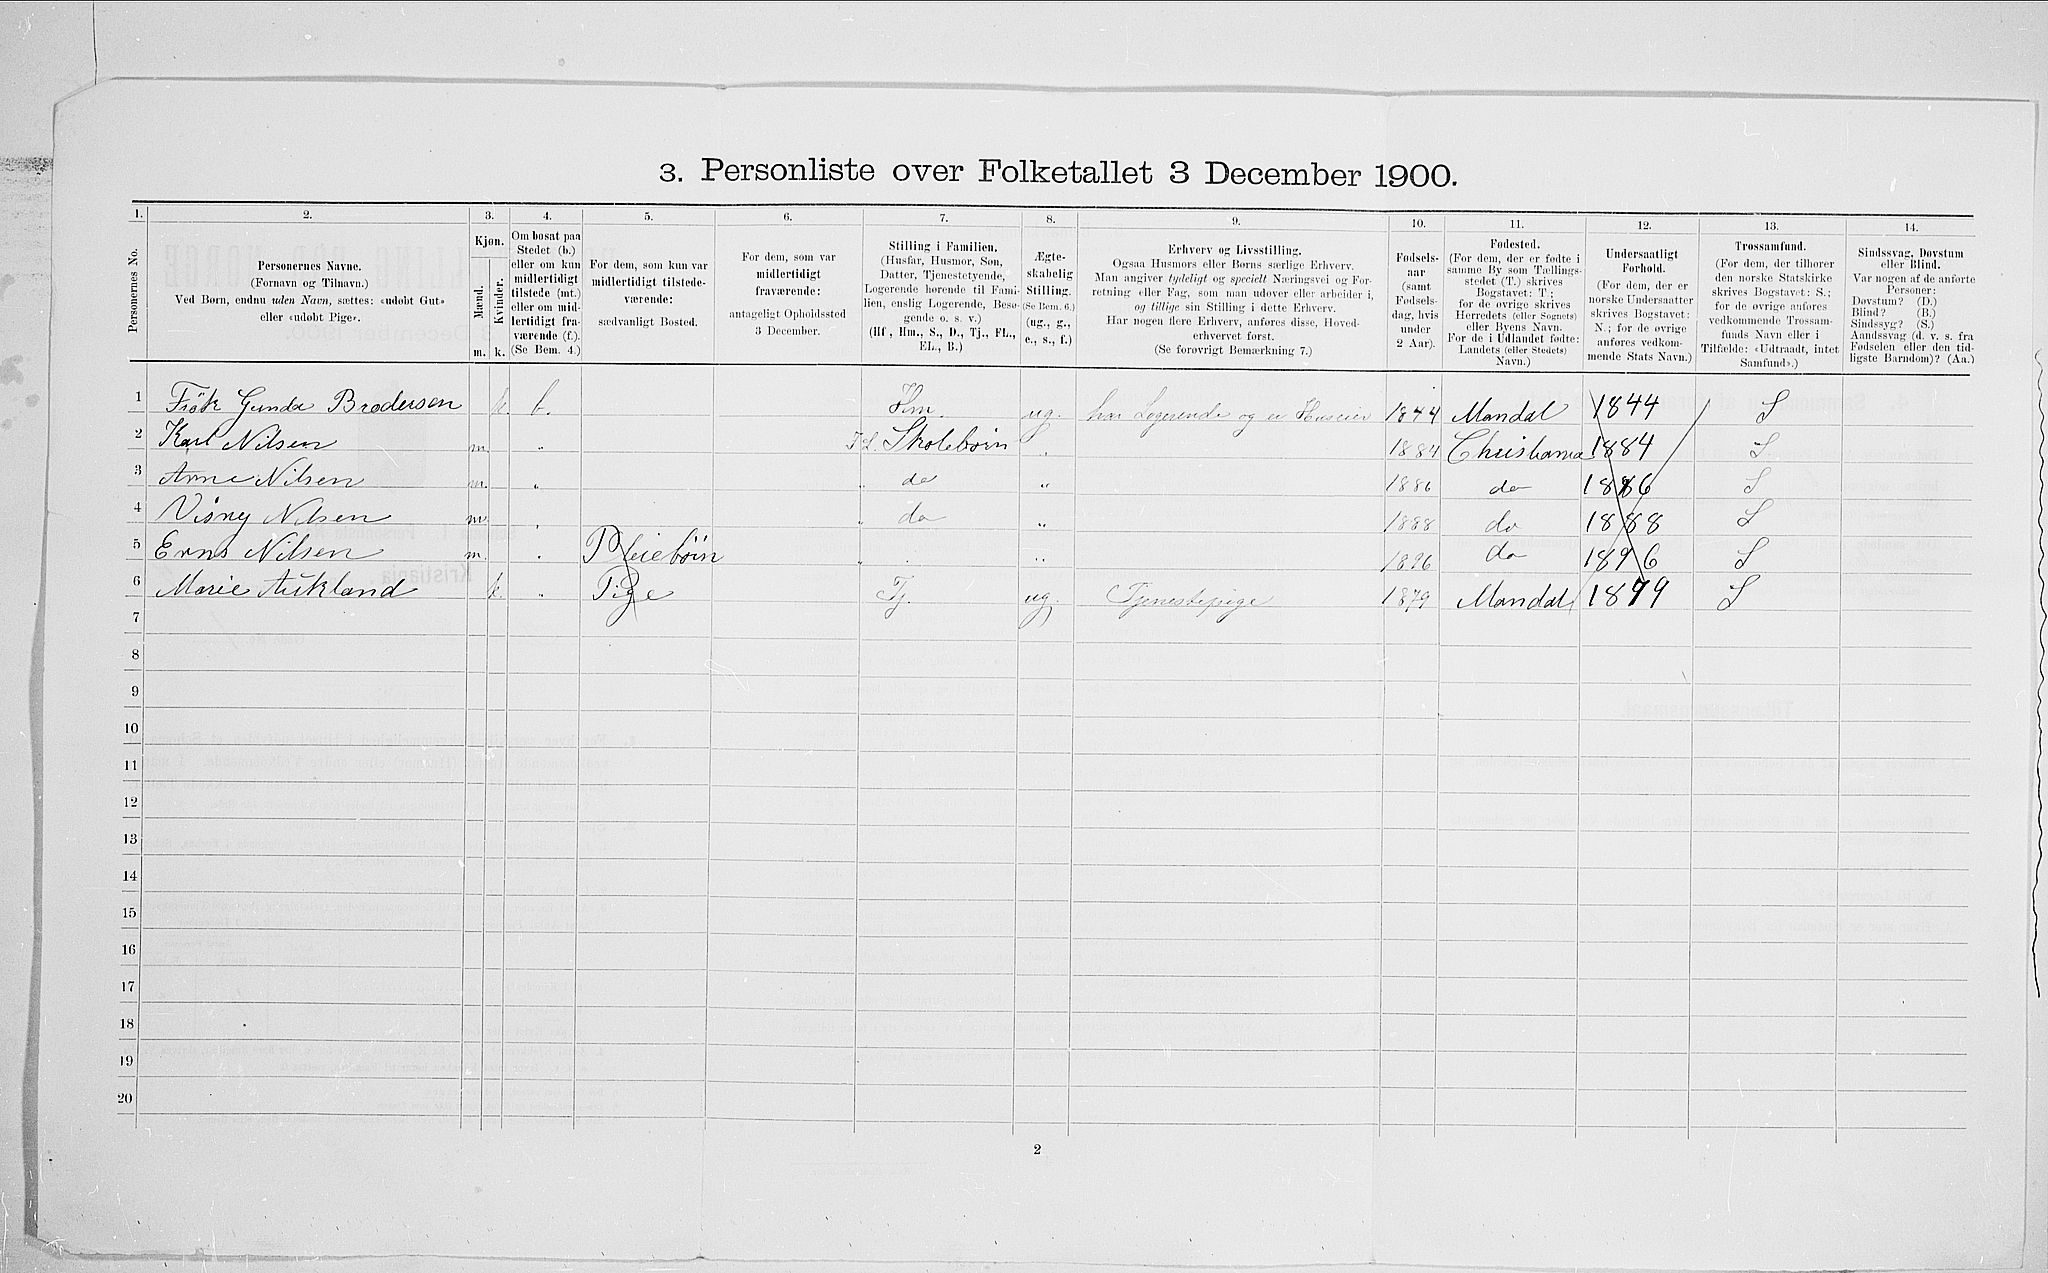 3. Personliste over Folketallet 3 December 1900.
1. 2. 3. 4. 5. 6. 7. 8. 9. 10. 11. 12. 13. 14.
Personernes No.
Personernes Navne.
(Fornavn og Tilnavn.)
Ved Børn, endnu uden Navn, sættes: «udøbt Gut»
eller «udøbt Pige».
Kjøn.
Mænd.
Kvinder.
m. k.
Om bosat paa
Stedet (b.)
eller om kun
midlertidigt
tilstede (mt.)
eller om mid-
lertidigt fra-
værende (f.).
(Se Bem. 4.)
For dem, som kun var
midlertidigt tilstede-
værende:
sædvanligt Bosted.
For dem, som var
midlertidigt
fraværende:
antageligt Opholdssted
3 December.
Stilling i Familien.
(Husfar, Husmor, Søn,
Datter, Tjenestetyende,
Logerende hørende til Fami-
lien, enslig Logerende, Besø-
gende o. s. v.)
(Hf, Hm., S., D., Tj., FL.,
EL., B.)
Ægte-
skabelig
Stilling.
(Se Bem. 6.)
(ug., g.,
e., s., f.)
Erhverv og Livsstilling.
Ogsaa Husmors eller Børns særlige Erhverv.
Man angiver tydeligt og specielt Næringsvei og For-
retning eller Fag, som man udøver eller arbeider i,
og tillige sin Stilling i dette Erhverv.
Har nogen flere Erhverv, anføres disse, Hoved-
erhvervet først.
(Se forøvrigt Bemærkning 7.)
Fødsels-
aar
(samt
Fødsels-
dag, hvis
under
2 Aar).
Fødested.
(For dem, der er fødte i
samme By som Tællings-
stedet (T.) skrives
Bogstavet: T;
for de øvrige skrives
Herredets (eller Sognets)
eller Byens Navn.
For de i Udlandet fødte:
Landets (eller Stedets)
Navn.)
Undersaatligt
Forhold.
(For dem, der er
norske Undersaatter
skrives Bogstavet:
N.; for de øvrige
anføres vedkom-
mende Stats Navn.)
Trossamfund.
(For dem, der tilhører
den norske Statskirke
skrives Bogstavet: S.;
for de øvrige anføres
vedkommende Trossam-
funds Navn eller i
Tilfælde: «Udtraadt, intet
Samfund».)
Sindssvag, Døvstum
eller Blind.
Var nogen af de anførte
Personer:
Døvstum? (D.)
Blind? (B.)
Sindssyg? (S.)
Aandssvag (d. v. s. fra
Fødselen eller den tid-
ligste Barndom)? (Aa.)
1 Frøk Gunda Brodersen k. b. Hm. ug. har Logerende og er Huseier 1844 Mandal 1844 S
2 Karl Nilsen m. " Skolebørn " 1884 Christiania 1884 S
3 Arne Nilsen m. " " do " 1886 do 1886 S
4 Nilsen m. " " do " 1888 do 1888 S
5 Nilsen m. " Pleiebørn " " 1896 do 1896 S
6 Marie Aukland k. " Pige Tj. ug. Tjenestepige 1879 Mandal 1879 S
7
8
9
10
11
12
13
14
15
16
17
18
19
20
2